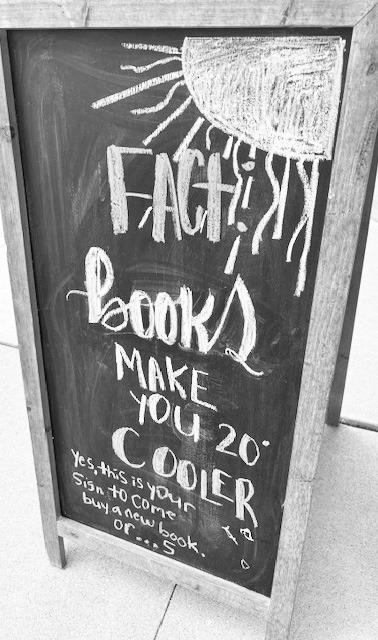 FACT:
books
MAKE
YOU 20°
COOLER
Yes, this is your
sign to come
buy a new book.
or...5